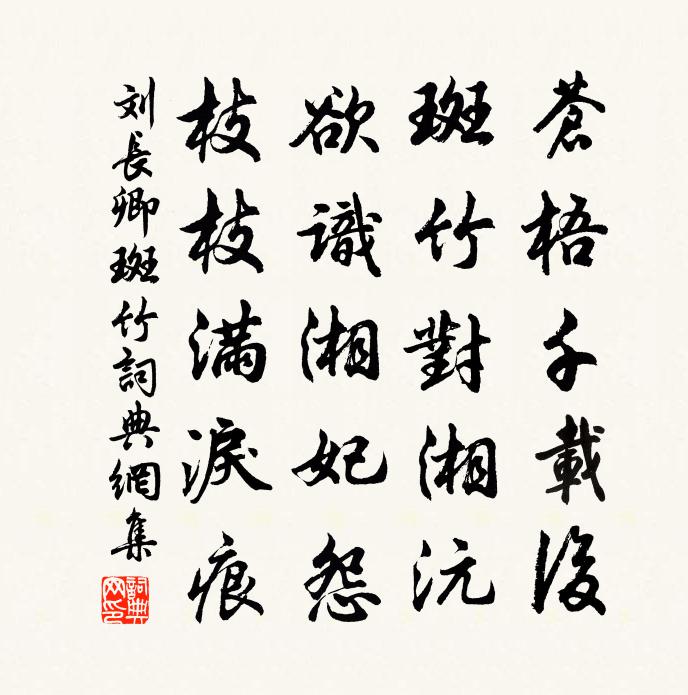 蒼梧千載後
斑竹對湘沅
欲識湘妃怨
枝枝滿淚痕
刘長卿斑竹詞典網集
詞典網印